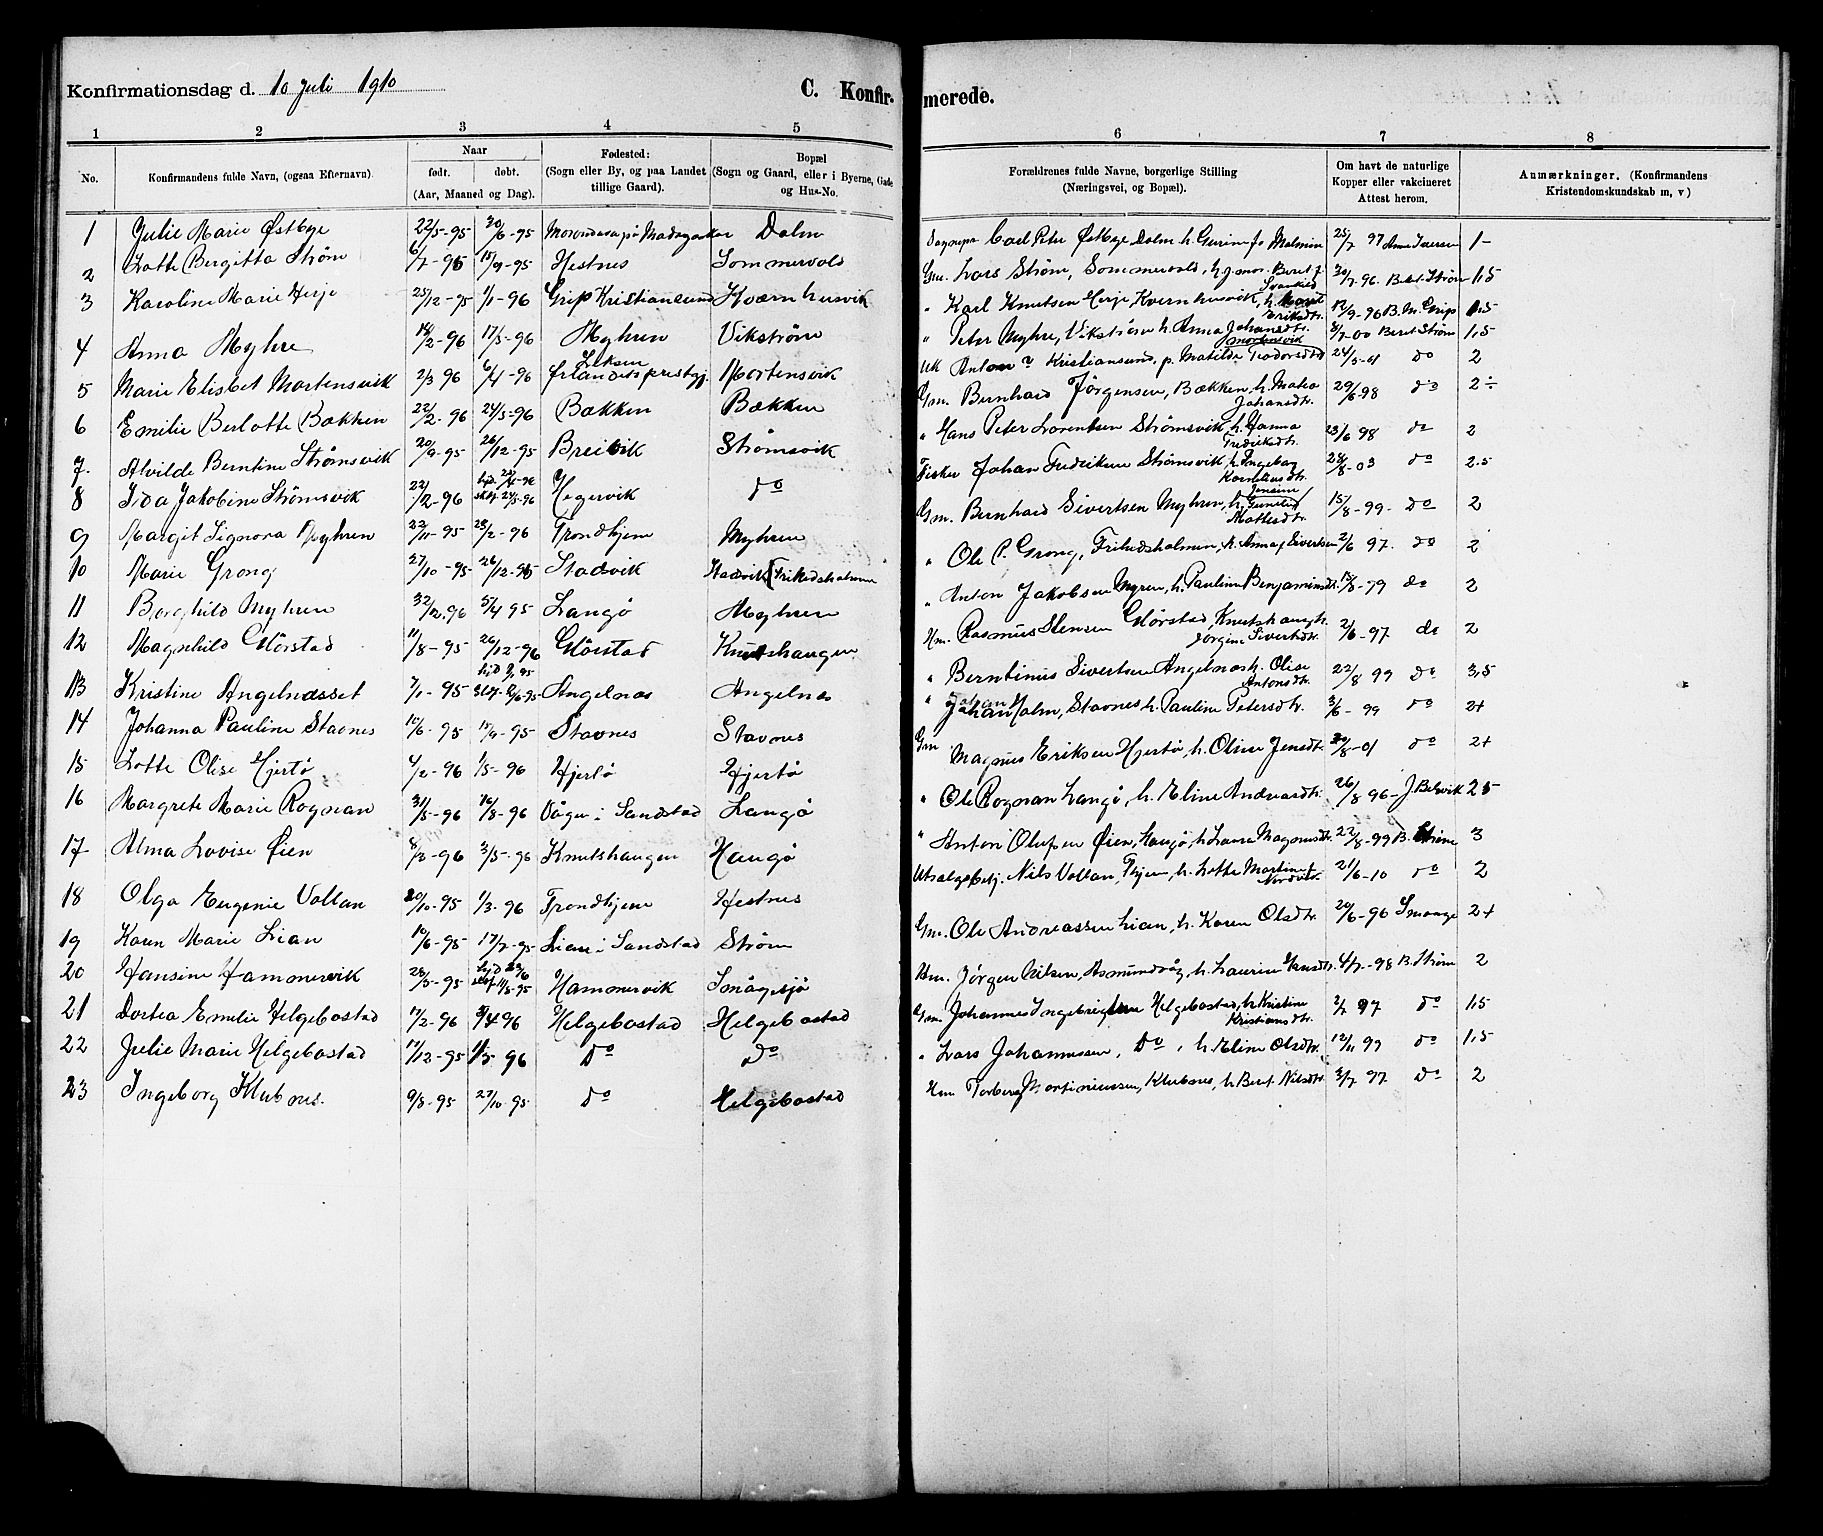 Konfirmationsdag d. 10 Juli 1910 C. Konfir-
merede.
1 2 3 4 5 6 7 8
No.
Konfirmandens fulde Navn, (ogsaa Efternavn)
Naar
født. døbt.
(Aar, Maaned og Dag).
Fødested:
(Sogn eller By, og paa Landet
tillige Gaard).
Bopæl
(Sogn og Gaard, eller i Byerne, Gade
og Hus-No.
Forældrenes fulde Navne, borgerlige Stilling
(Næringsvei, og Bopæl).
Om havt de naturlige
Kopper eller vakcineret
Attest herom.
Anmærkninger. (Konfirmandens
Kristendomskundskab m, v)
1 Julie Marie Østbye 22/5-95 30/6-95 på Madagaskar Dolm Carl Peter Østbye Dolm h. 25/7 97 1-
2 Lotte Bergitta Strøm 6/7-95 15/9-95 Hestnes Sommervold Gm. Lars Strøm, Sommervold, h. Berit 30/7-96 Beret Strøm 1,5
3 Karoline Marie Herje 25/12-95 1/1-96 Grip Kristiansund Kværnhusvik " Karl Knutsen Herje, Kvernhusvik, h. Marit Eriksdtr. 12/9-96 B. M. Grip 1,5
4 Anna Myhre 18/2-96 17/5-96 Myhren Vikstrøm " Peter Myhre, Vikstrøm h. Anna Johansdtr. 8/7-00 Beret Strøm 1,5
5 Marie Elisbet Mortensvik 2/3 96 6/4-96 Ørlandets prestgj. Mortensvik Uk Anton ? Kristiansund, p. Matilde Teodorsdtr 24/5-01 do 2
6 Emilie Berlotte Bakken 22/2-96 24/5-96 Bækken Bækken Gm. Bernhard Jørgensen, Bækken, h. Johansdtr. 29/6-98 do 2÷
7. Alvilde Berntine Strømsvik 20/9-95 26/12-95 Breivik Strømsvik " Hans Peter Lorentsen Strømsvik h. Hanna Fredriksdtr. 23/6 98 do 2
8 Ida Jakobine Strømsvik 22/2-96 24/5-96 Hegervik do Fisker Johan Fredriksen Strømsvik h. Ingeborg Korneliusdtr. 28/8-03 do 2.5
9 Margit Signora Myhren 22/11-95 28/2-96 Trondhjem Myhren Gm. Bernhard Sivertsen Myhren, h. 15/8-99- do 2
10 Marie Grong 27/10-95 26/12-95 Stadvik Stadvik " Ole P. Grong, h. Anna Sivertsen 2/6 97. do 2
11 Borghild Myhren 5/4 95 Langø Myhren " Anton Jakobsen Myren, h. Pauline Benjaminsdtr. do 2
12 Magnhild Glørstad 11/8-95 26/12-96 Glørstad Knutshaugen Hm. Rasmus Glørstad, Knutshaug h. Jørgine Sivertsdtr. 2/6-97 do 2
13 Kristine Angelnæsset 7/1-95 Angelnæs Angelnæs " Berntinus Sivertsen Angelnæs h. Olise Antonsdtr. 22/8 99 do 3,5
14 Johanna Pauline Stavnes 10/6-95 15/9-95 Stavnes Stavnes " Johan Holm, Stavnes h. Pauline Petersdtr. 3/6-99 do 2+
15 Lotte Olise Hjertø 4/2-96 1/5-96 Hjertø Hjertø Gm Magnus Eriksen Hjertø, h. Oline Jensdtr. do 2+
16 Margrete Marie Rognan 31/5-96 16/8-96 Vågen i Sandstad Langø " Ole Rognan Langø, h. Eline Andreasdtr. 26/8 96- 2.5
17 Alma Lovise Øien 8/2-96 3/5-96 Knutshaugen Haugø " Anton Olufsen Øien, Haugø, h. Laura Magnusdtr. 22/8-99 B. Strøm 3
18 Olga Eugenie Vollan 20/10-95 1/3-96 Trondhjem Hestnes Utsalgsbetj. Nils Vollan, Thjem, h. Lotte 21/6-10 do 2
19 Karen Marie Lian 10/6-95 17/7-95 Lian i Sandstad Strøm Gm. Ole Andreassen Lian, h. Karen Olsdtr. 20/6-96 Smaage 2+
20 Hansine Hammervik 28/5-95 Hammervik Smågesjø Hm. Jørgen Nilsen, Asmundvåg, h. Laurine 4/7-98 B. Strøm 2
21 Dortea Emelie Helgebostad 17/2-96 Helgebostad Helgebostad Gm. Johannes Ingebrigtsen Helgebostad, h. Kristine Kristiansdtr. 2/7 97 do 1,5
22 Julie Marie Helgebostad 17/12-95 1/3 96 Do do " Lars Johannessen, Do, h. Eline Olsdtr. 12/11 99 do 1,5
23 Ingeborg Klubnes. 9/8-95 27/10-95 Do Helgebostad Hm Torberg Martinussen, Klubnes, h. Beret Nilsdtr. 3/7 97 Do 2